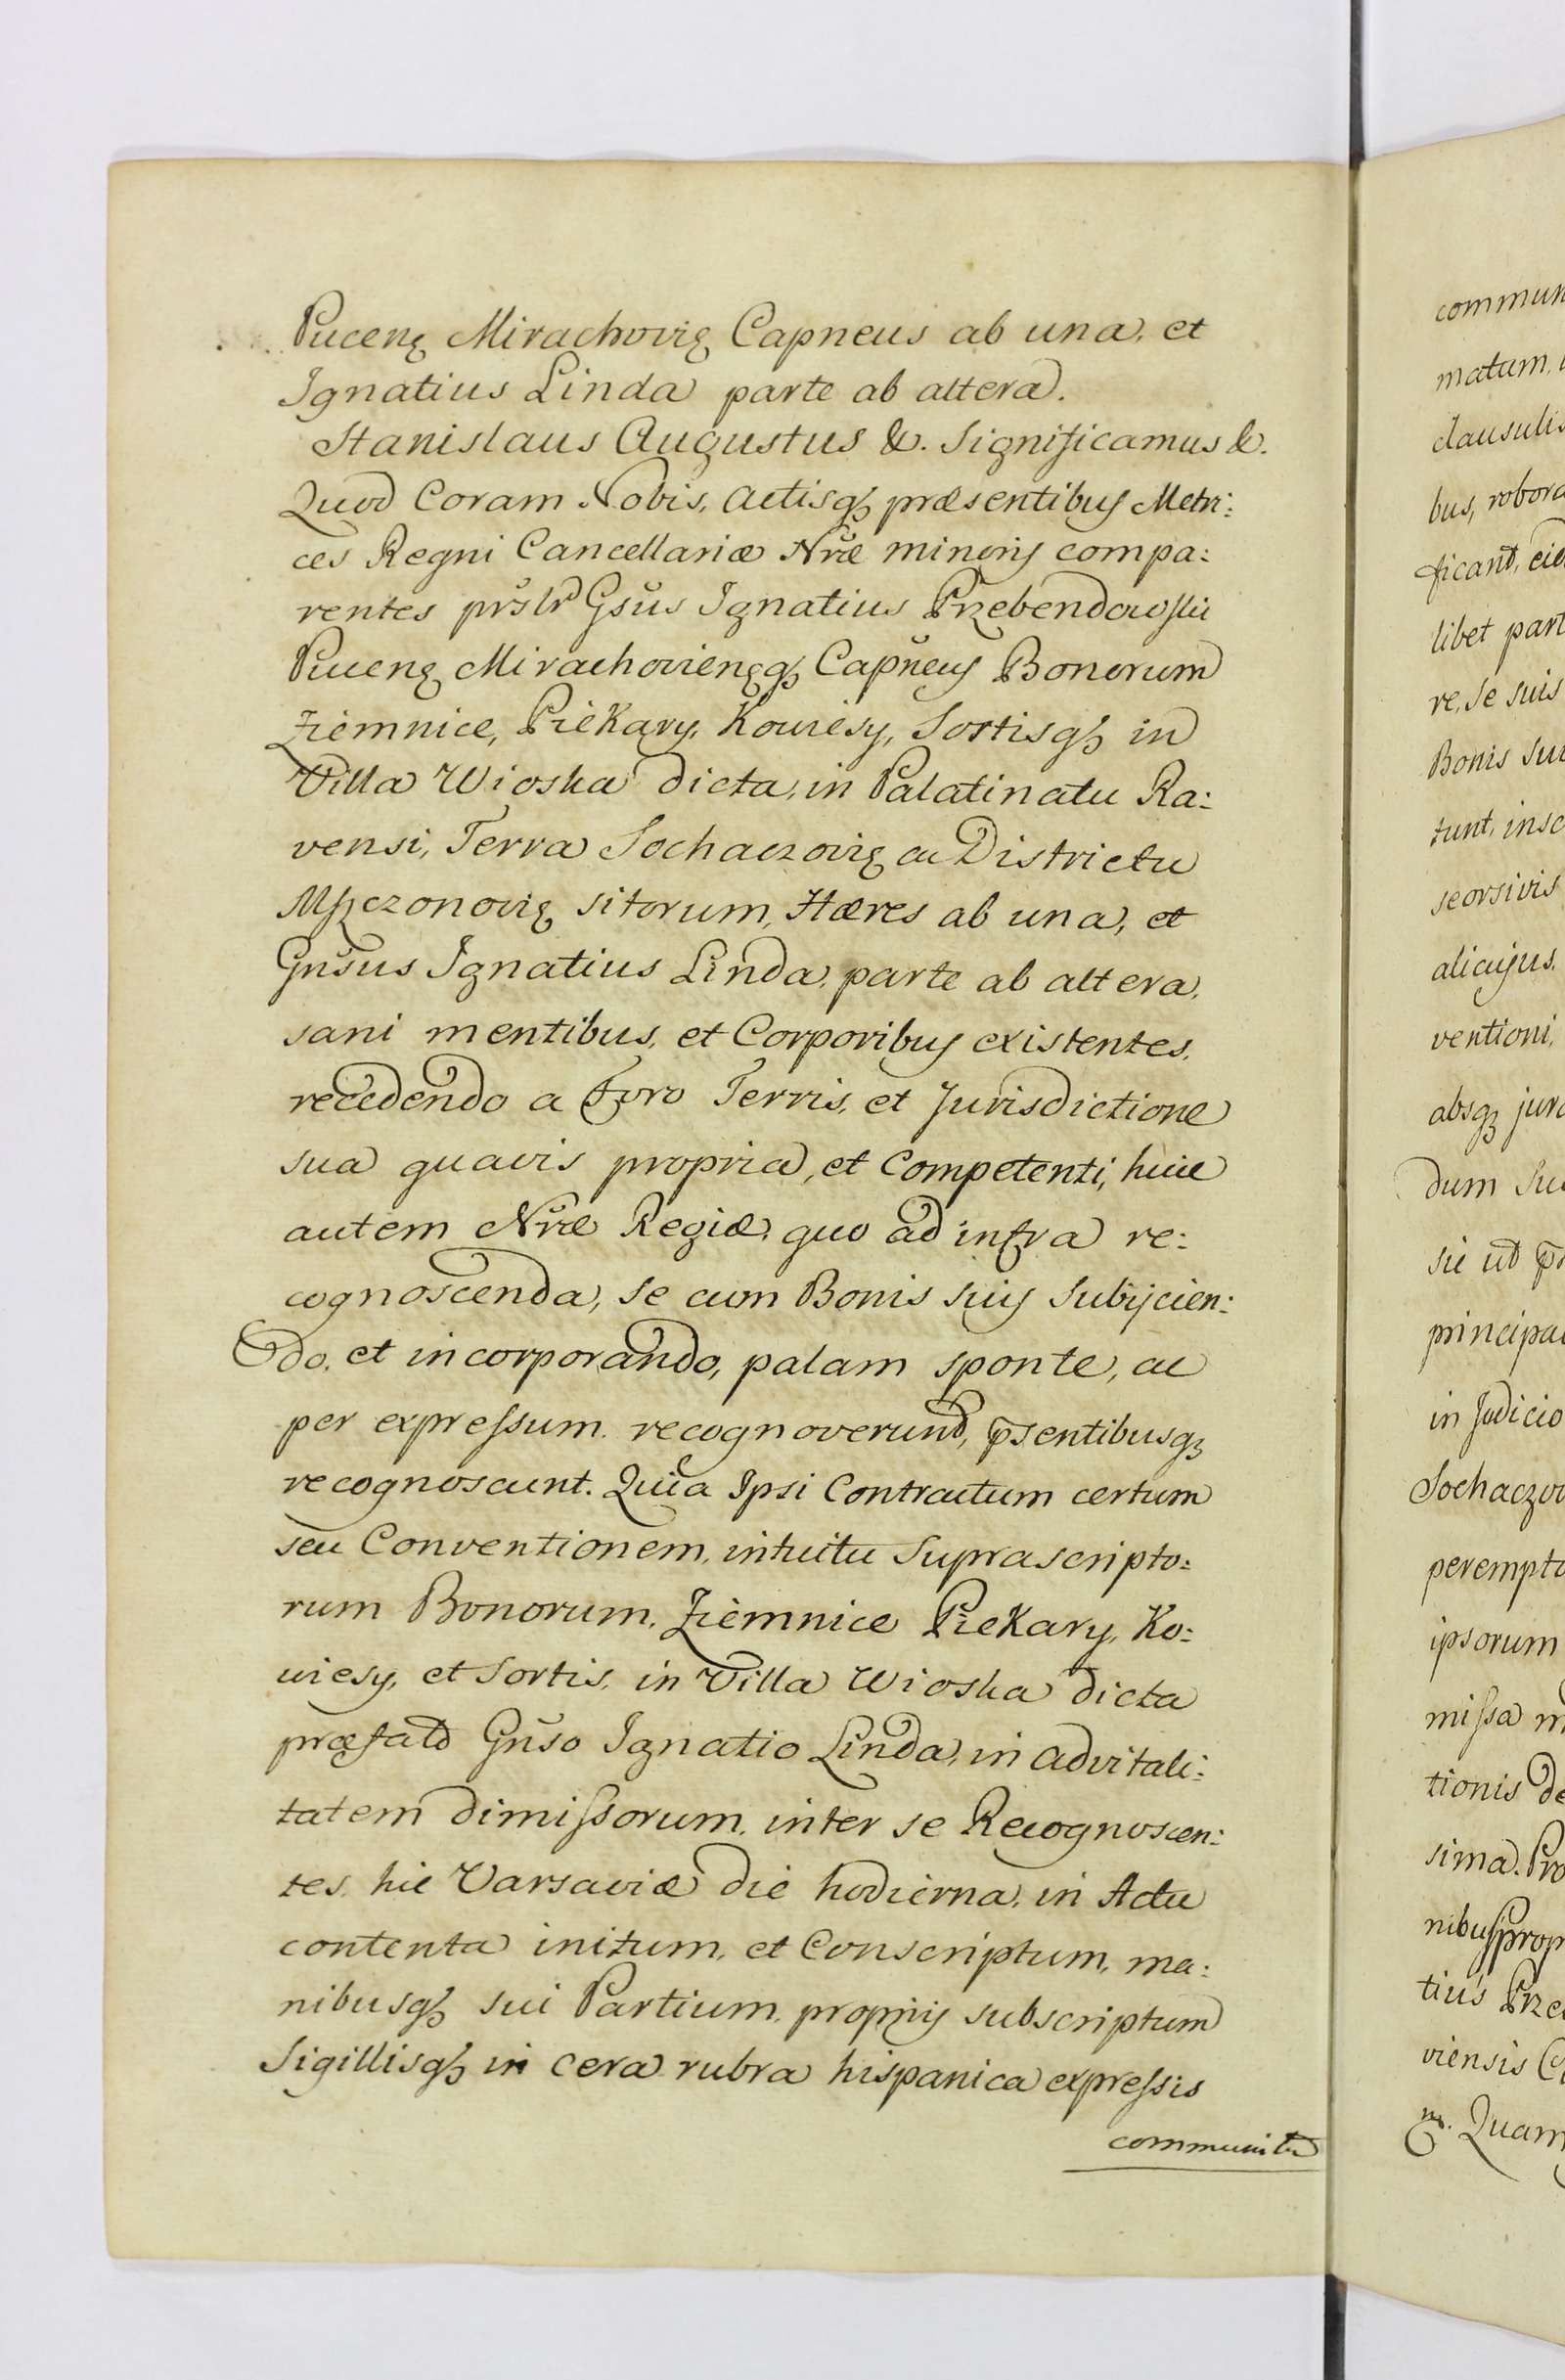 Pucenę Mirachovię Capneus ab una, et
Ignatius Linda parte ab altera.
Stanislaus Augustus &. Significamus &.
Quod Coram Nobis, Actisqꝫ præsentibus Metri:
ces Regni Cancellariæ Nr̃æ minoris compa:
rentes pr̃slr Gsũs Ignatius Przebendowski
Pucenę Mirachoviengqꝫ Capñeus Bonorum
Ziemnice, Piekary, Kowiesy, Sortisqꝫ in
Villa Wioska dicta, in Palatinatu Ra:
vensi, Terra Sochaczovię ac Districtu
Mszczonovię sitorum, Hæres ab una, et
Gñsus Ignatius Linda, parte ab altera,
sani mentibus, et Corporibus existentes,
recedendo a Foro Terris, et Jurisdictione
sua quavis propria, et Competenti, huic
autem Nr̃æ Regiæ, quo ad infra re:
cognoscenda, se cum Bonis suis Subijcien:
do, et incorporando, palam sponte, ac
per expressum recognoverunt, p̃sentibusqꝫ
recognoscunt. Quia Ipsi Contractum certum
seu Conventionem, intuitu Suprascripto:
rum Bonorum, Ziemnice Piekary, Ko:
wiesy, et Sortis, in Villa Wioska dicta
præfato Gñso Ignatio Linda, in advitali:
tatem dimissorum, inter se Recognoscen:
tes, hic Varsaviæ die hodierna, in Actu
contenta initum, et Conscriptum, ma:
nibusqꝫ sui Partium, proprijs subscriptum
Sigillisqꝫ in cera rubra hispanica expressis
communitu
commun
matum,
clausulis
bus, robora
ficant,
libet part
re, se suis
Bonis sui
tunt, insc
seorsivis
alicujus,
ventioni,
absqꝫ jura
dum su
sic ut
principal
in Judicio
Sochaczov
perempto
ipsorum
missa m
tionis de
sima. Pro
nibus prop
tius Prze
viensis C
mp. Quam